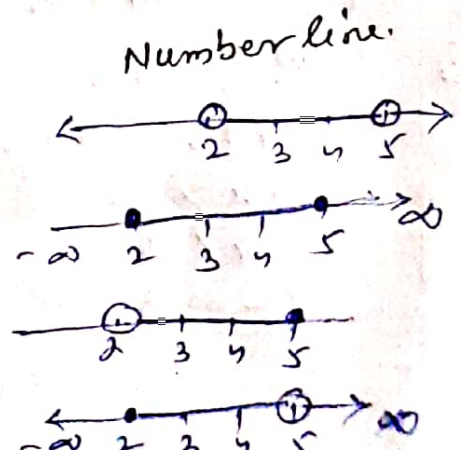 Number line.
2 3 4 5
-∞ 2 3 4 5 ∞
2 3 4 5
-∞ 2 3 4 5 ∞